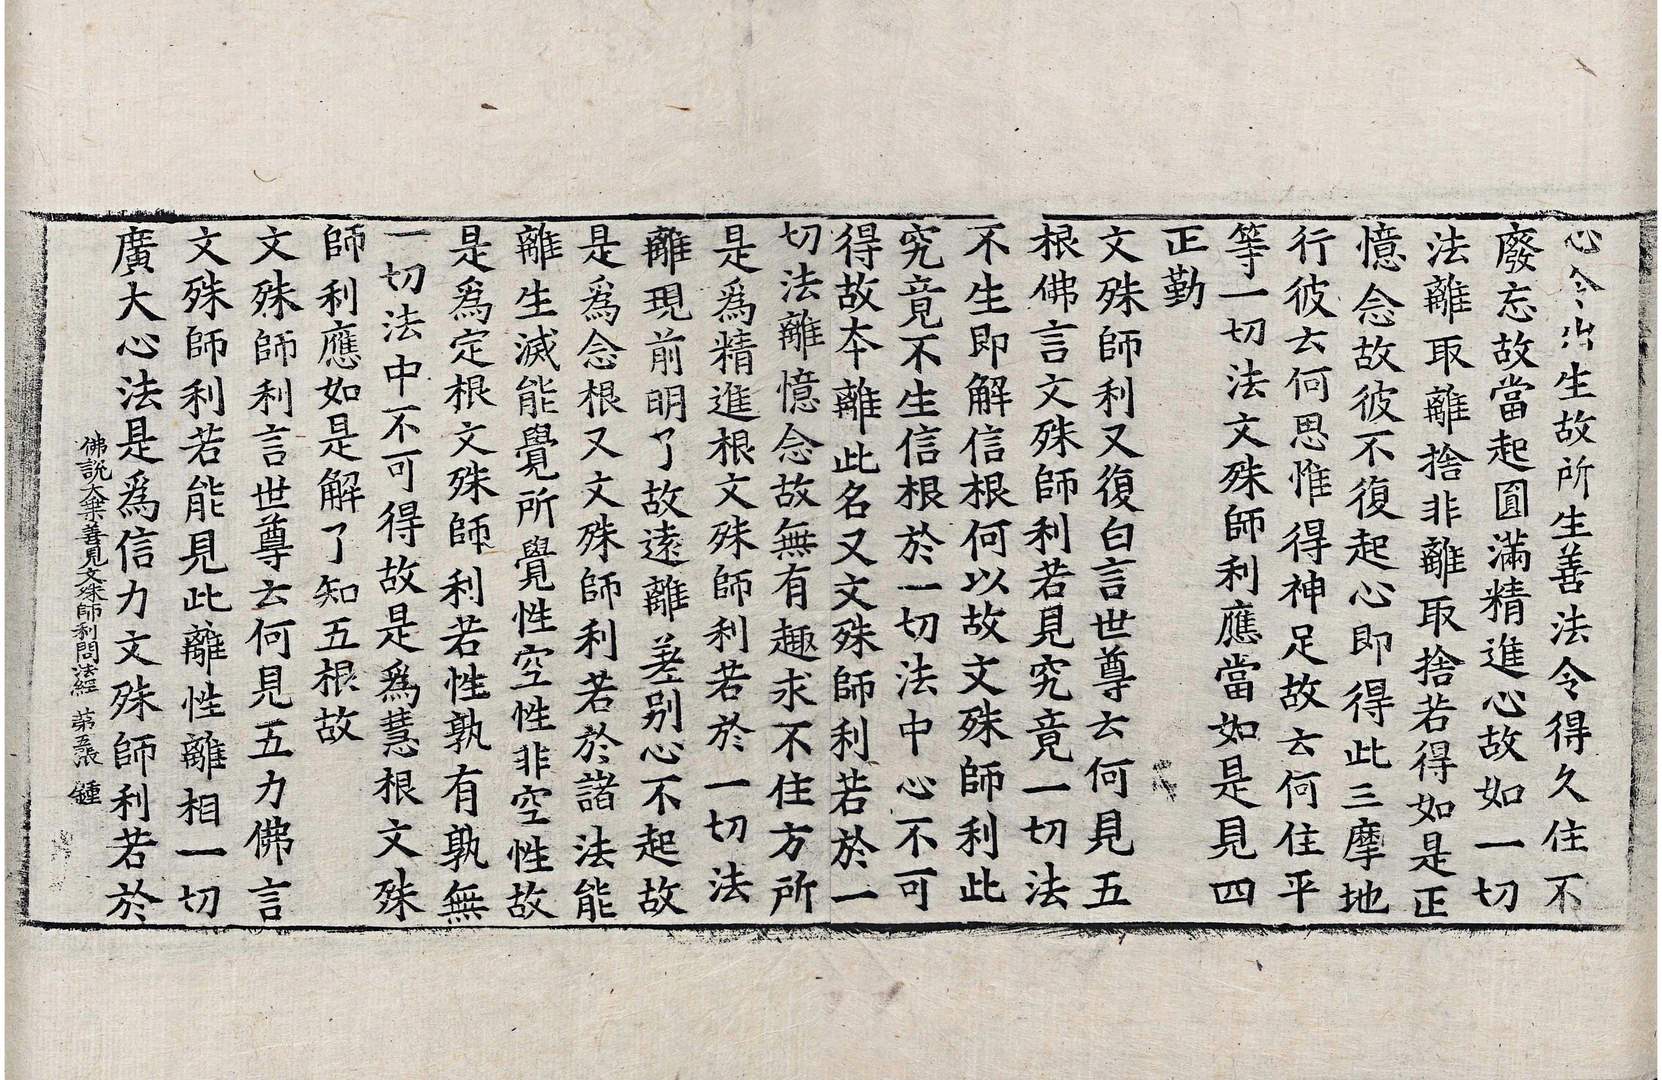 心令出生故所生善法令得久住不
廢忘故當起圓滿精進心故如一切
法離取離捨非離取捨若得如是正
憶念故彼不復起心即得此三摩地
行彼云何思惟得神足故云何住平
等一切法文殊師利應當如是見四
正勤
文殊師利又復白言世尊云何見五
根佛言文殊師利若見究竟一切法
不生即解信根何以故文殊師利此
究竟不生信根於一切法中心不可
得故本離此名又文殊師利若於一
切法離憶念故無有趣求不住方所
是爲精進根文殊師利若於一切法
離現前明了故遠離差別心不起故
是爲念根又文殊師利若於諸法能
離生滅能覺所覺性空性非空性故
是爲定根文殊師利若性孰有孰無
一切法中不可得故是爲慧根文殊
師利應如是解了知五根故
文殊師利言世尊云何見五力佛言
文殊師利若能見此離性離相一切
廣大心法是爲信力文殊師利若於
佛說大乘善見文殊師利問法經 第五張 鍾